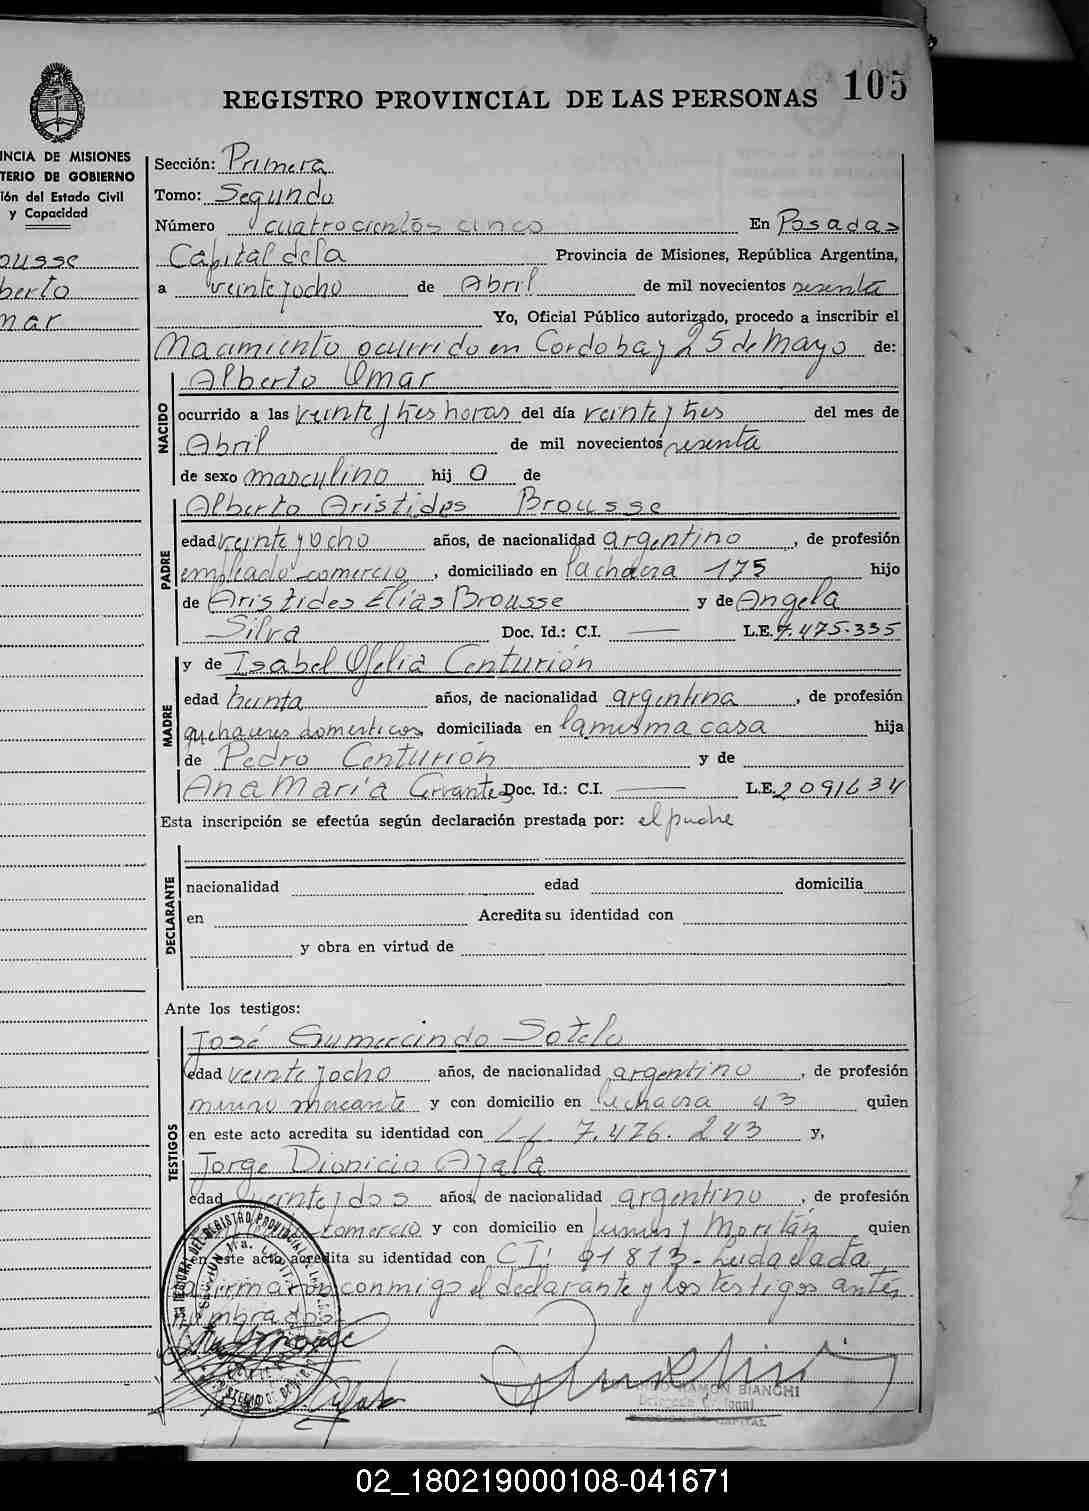 105
REGISTRO PROVINCIAL DE LAS PERSONAS
INCIA DE MISIONES
TERIO DE GOBIERNO
ión del Estado Civil
y Capacidad
ousse
berto
mar
Sección: Primera
Tomo: Segundo
Número cuatrocientos cinco En Posadas
Capital dela Provincia de Misiones, República Argentina,
a veinte y ocho de Abril de mil novecientos sesenta
Yo, Oficial Público autorizado, procedo a inscribir el
Nacimiento ocurrido en Cordoba y 25 de Mayo de:
NACIDO
Alberto Omar
ocurrido a las veinte y tres horas del día veinte y tres del mes de
Abril de mil novecientos sesenta
de sexo masculino hij o de
PADRE
Alberto Aristides Brousse
edad veinte y ocho años, de nacionalidad argentino, de profesión
empleado comercio, domiciliado en la chacra 175 hijo
de Aristides Elias Brousse y de Angela
Silva Doc. Id.: C.I. — L.E. 7.475.335
MADRE
y de Isabel Ofelia Centurión
edad treinta años, de nacionalidad argentina, de profesión
quehaceres domesticos domiciliada en la misma casa hija
de Pedro Centurión y de
Ana María Cervantes Doc. Id.: C.I. — L.E. 2091634
Esta inscripción se efectúa según declaración prestada por: el padre
DECLARANTE
nacionalidad edad domicilia
en Acredita su identidad con
y obra en virtud de
Ante los testigos:
TESTIGOS
José Gumercindo Sotelo
edad veinte y ocho años, de nacionalidad argentino, de profesión
mercante y con domicilio en la chacra 43 quien
en este acto acredita su identidad con L.E. 7.476.243 y,
Jorge Dionicio Ayala
edad veinte y dos años, de nacionalidad argentino, de profesión
comercio y con domicilio en quien
en este acto acredita su identidad con CI: 91813-Leida el acta
la firmaron conmigo el declarante y los testigos antes
nombrados
RAMON BIANCHI
CAPITAL
02_180219000108-041671